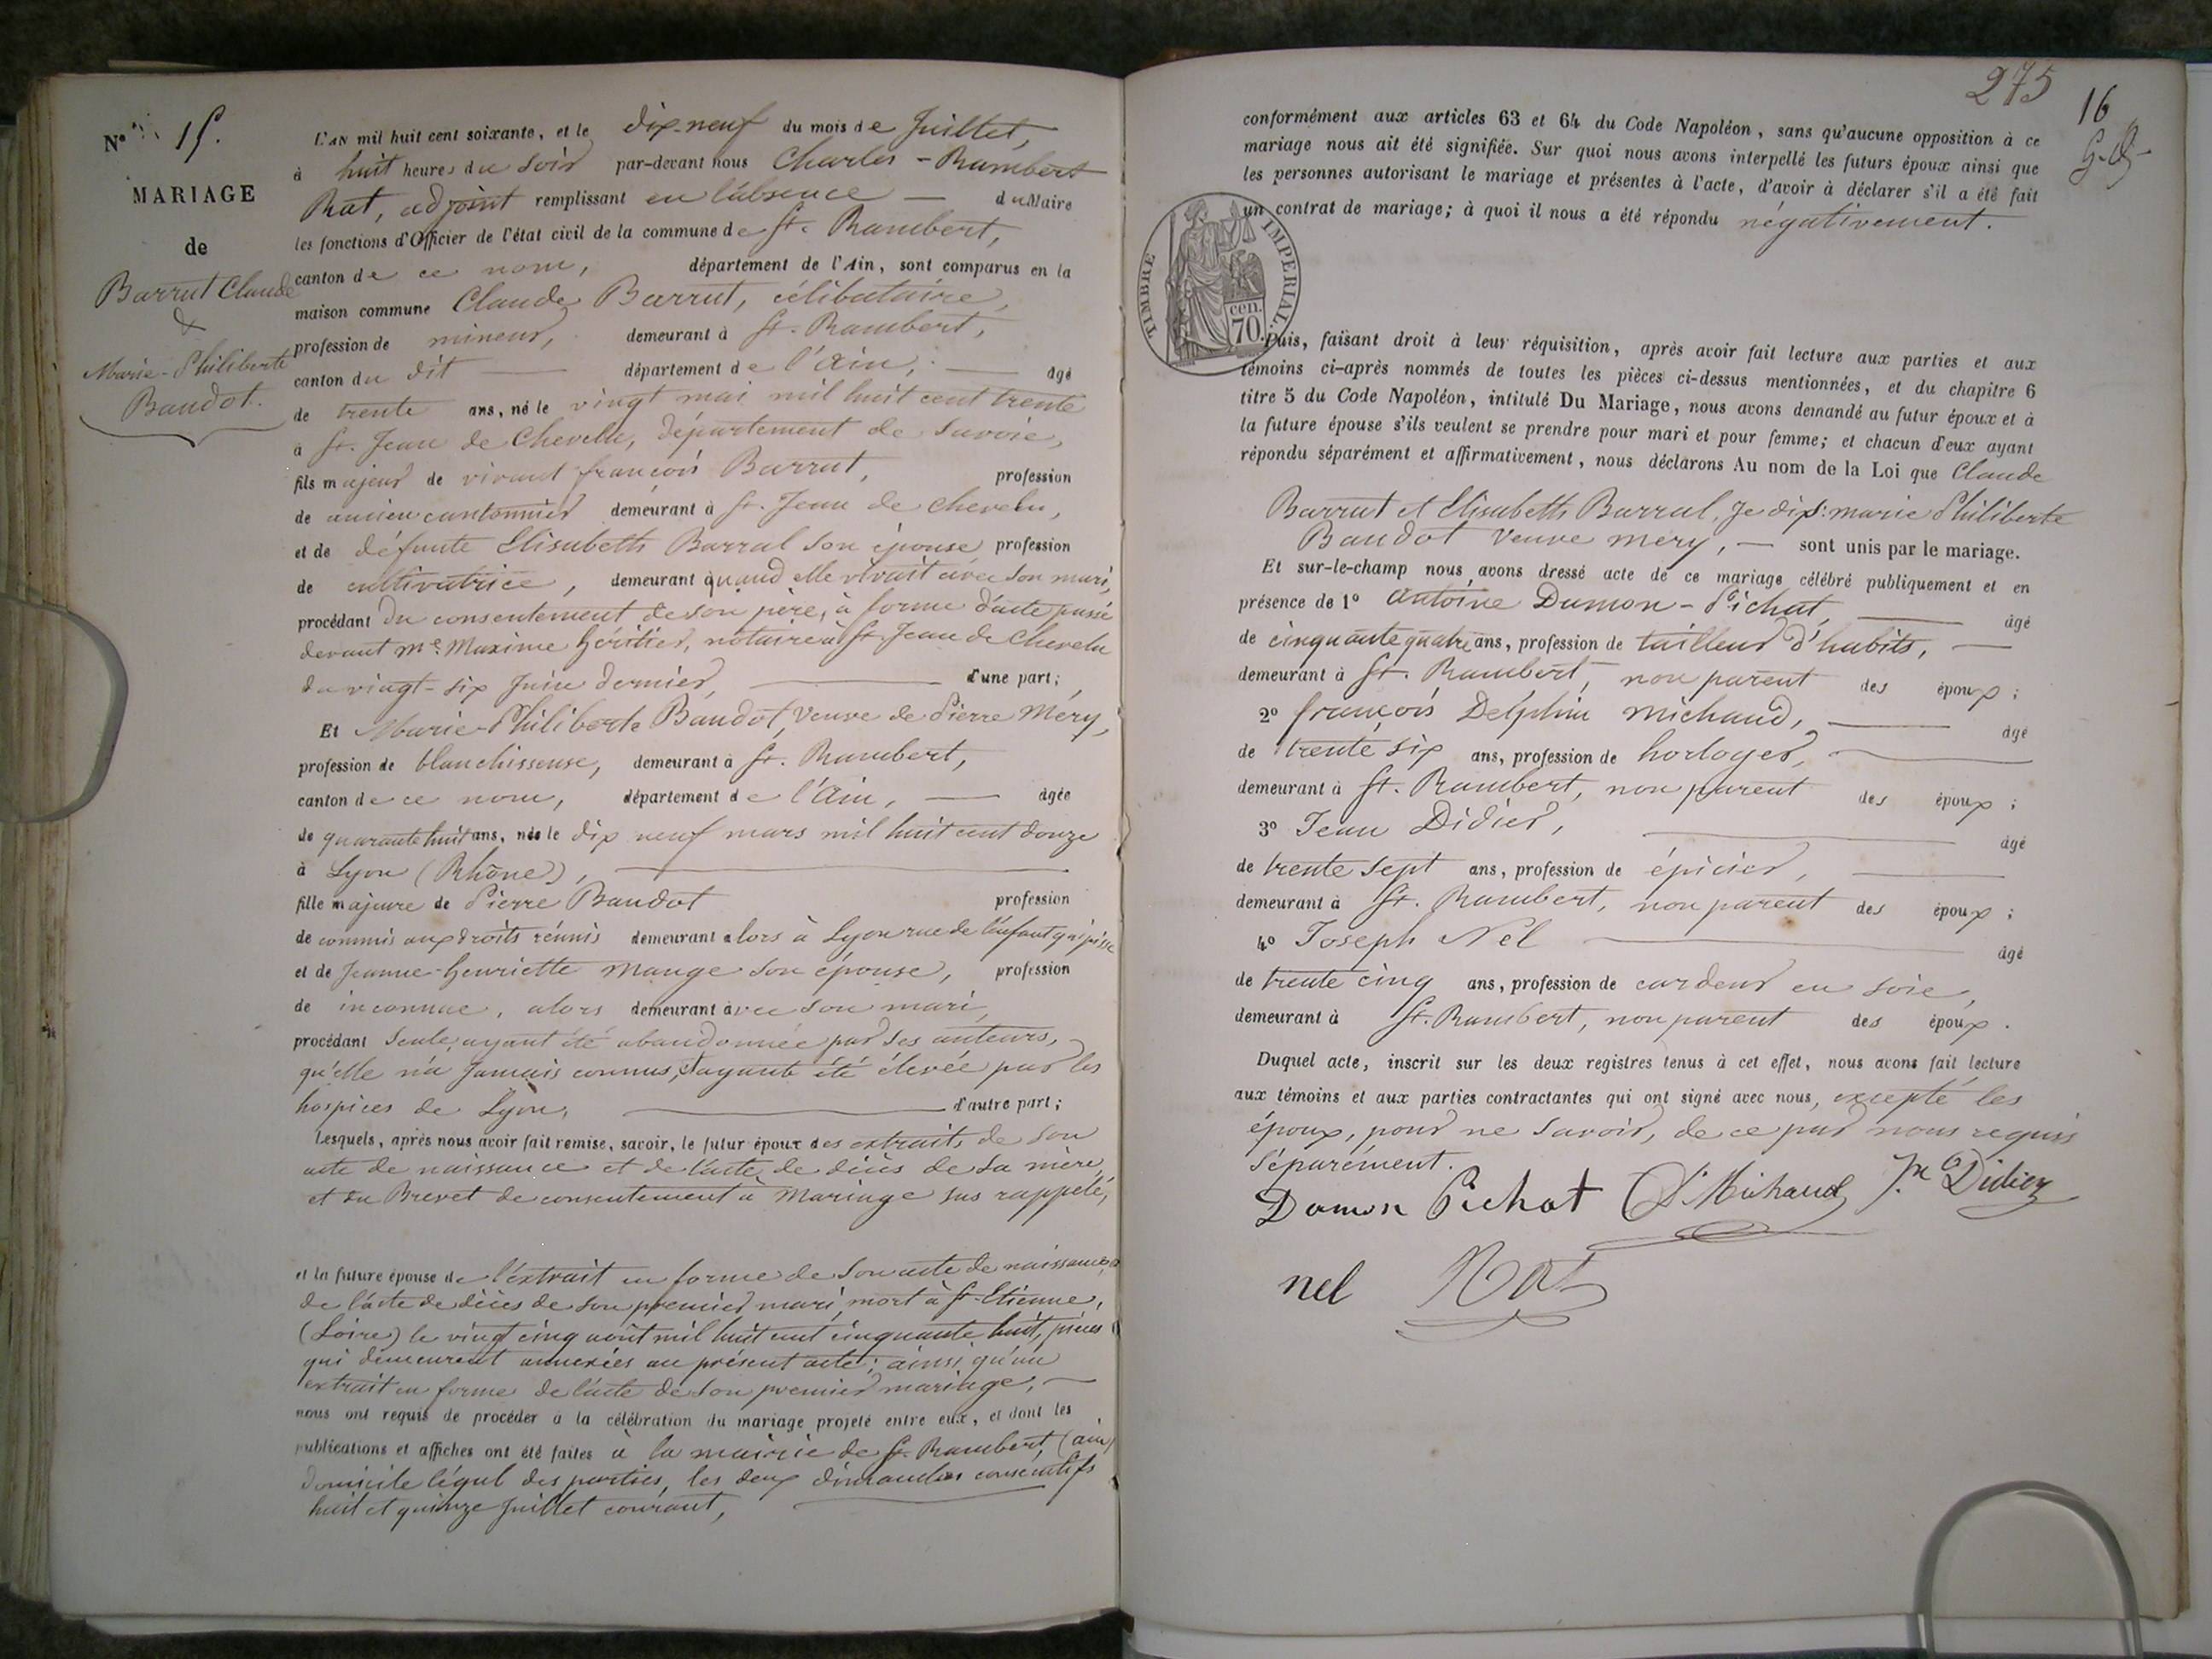 N° 15.
MARIAGE
de
Barrut Claude
&
Marie-Philiberte
Baudot.
L'AN mil huit cent soixante, et le dix-neuf du mois de Juillet,
à huit heures du soir par-devant nous Charles-Rambert
Rat, adjoint remplissant en l'absence — du Maire
les fonctions d'Officier de l'état civil de la commune de St. Rambert,
canton de ce nom, département de l'Ain, sont comparus en la
maison commune Claude Barrut, célibataire,
profession de mineur, demeurant à St. Rambert,
canton du dit — département de l'Ain, — âgé
de trente ans, né le vingt mai mil huit cent trente
à St. Jean de Chevelu, département de Savoie,
fils majeur de vivant françois Barrut, profession
de ancien cantonnier demeurant à St. Jean de Chevelu,
et de défunte Elisabeth Barral son épouse profession
de cultivatrice, demeurant quand elle vivait avec son mari,
procédant du consentement de son père, à forme d'acte passé
devant Me. Maxime Héritier, notaire à St. Jean de Chevelu
du vingt-six Juin dernier, — d'une part;
Et Marie-Philiberte Baudot, veuve de Pierre Méry,
profession de blanchisseuse, demeurant à St. Rambert,
canton de ce nom, département de l'Ain, — âgée
de quarante huit ans, née le dix neuf mars mil huit cent douze
à Lyon (Rhône), —
fille majeure de Pierre Baudot profession
de commis aux droits réunis demeurant alors à Lyon rue de l'enfant qui pisse
et de Jeanne-henriette Mange son épouse, profession
de inconnue, alors demeurant avec son mari,
procédant seule, ayant été abandonnée par ses auteurs,
qu'elle n'a jamais connus, et ayant été élevée par les
hospices de Lyon, — d'autre part;
Lesquels, après nous avoir fait remise, savoir, le futur époux des extraits de son
acte de naissance et de l'acte de décès de sa mère,
et du Brevet de consentement à Mariage sus rappelé,
et la future épouse de l'extrait en forme de son acte de naissance,
de l'acte de décès de son premier mari, mort à St-Etienne,
(Loire) le vingt cinq août mil huit cent cinquante huit, pièces
qui demeurent annexées au présent acte; ainsi qu'un
extrait en forme de l'acte de son premier mariage, —
nous ont requis de procéder à la célébration du mariage projeté entre eux, et dont les
publications et affiches ont été faites à la mairie de St. Rambert, (ain)
domicile légal des parties, les deux dimanches consécutifs
huit et quinze Juillet courant, —
275
16
conformément aux articles 63 et 64 du Code Napoléon, sans qu'aucune opposition à ce
mariage nous ait été signifiée. Sur quoi nous avons interpellé les futurs époux ainsi que
les personnes autorisant le mariage et présentes à l'acte, d'avoir à déclarer s'il a été fait
un contrat de mariage; à quoi il nous a été répondu négativement.
TIMBRE IMPERIAL.
cen.
70.
Puis, faisant droit à leur réquisition, après avoir fait lecture aux parties et aux
témoins ci-après nommés de toutes les pièces ci-dessus mentionnées, et du chapitre 6
titre 5 du Code Napoléon, intitulé Du Mariage, nous avons demandé au futur époux et à
la future épouse s'ils veulent se prendre pour mari et pour femme; et chacun d'eux ayant
répondu séparément et affirmativement, nous déclarons Au nom de la Loi que Claude
Barrut et Elisabeth Barral, Je dis: marie Philiberte
Baudot veuve méry, — sont unis par le mariage.
Et sur-le-champ nous avons dressé acte de ce mariage célébré publiquement et en
présence de 1° Antoine Dumon-Pichat, — âgé
de cinquante quatre ans, profession de tailleur d'habits, —
demeurant à St. Rambert, non parent des époux;
2° françois Delphin Michaud, — âgé
de trente six ans, profession de horloger, —
demeurant à St. Rambert, non parent des époux;
3° Jean Didier, — âgé
de trente sept ans, profession de épicier, —
demeurant à St. Rambert, non parent des époux;
4° Joseph Nel — âgé
de trente cinq ans, profession de cardeur en soie,
demeurant à St. Rambert, non parent des époux.
Duquel acte, inscrit sur les deux registres tenus à cet effet, nous avons fait lecture
aux témoins et aux parties contractantes qui ont signé avec nous, excepté les
époux, pour ne savoir, de ce par nous requis
séparément.
Dumon Pichat D. Michaud Jn Didier
nel Rat